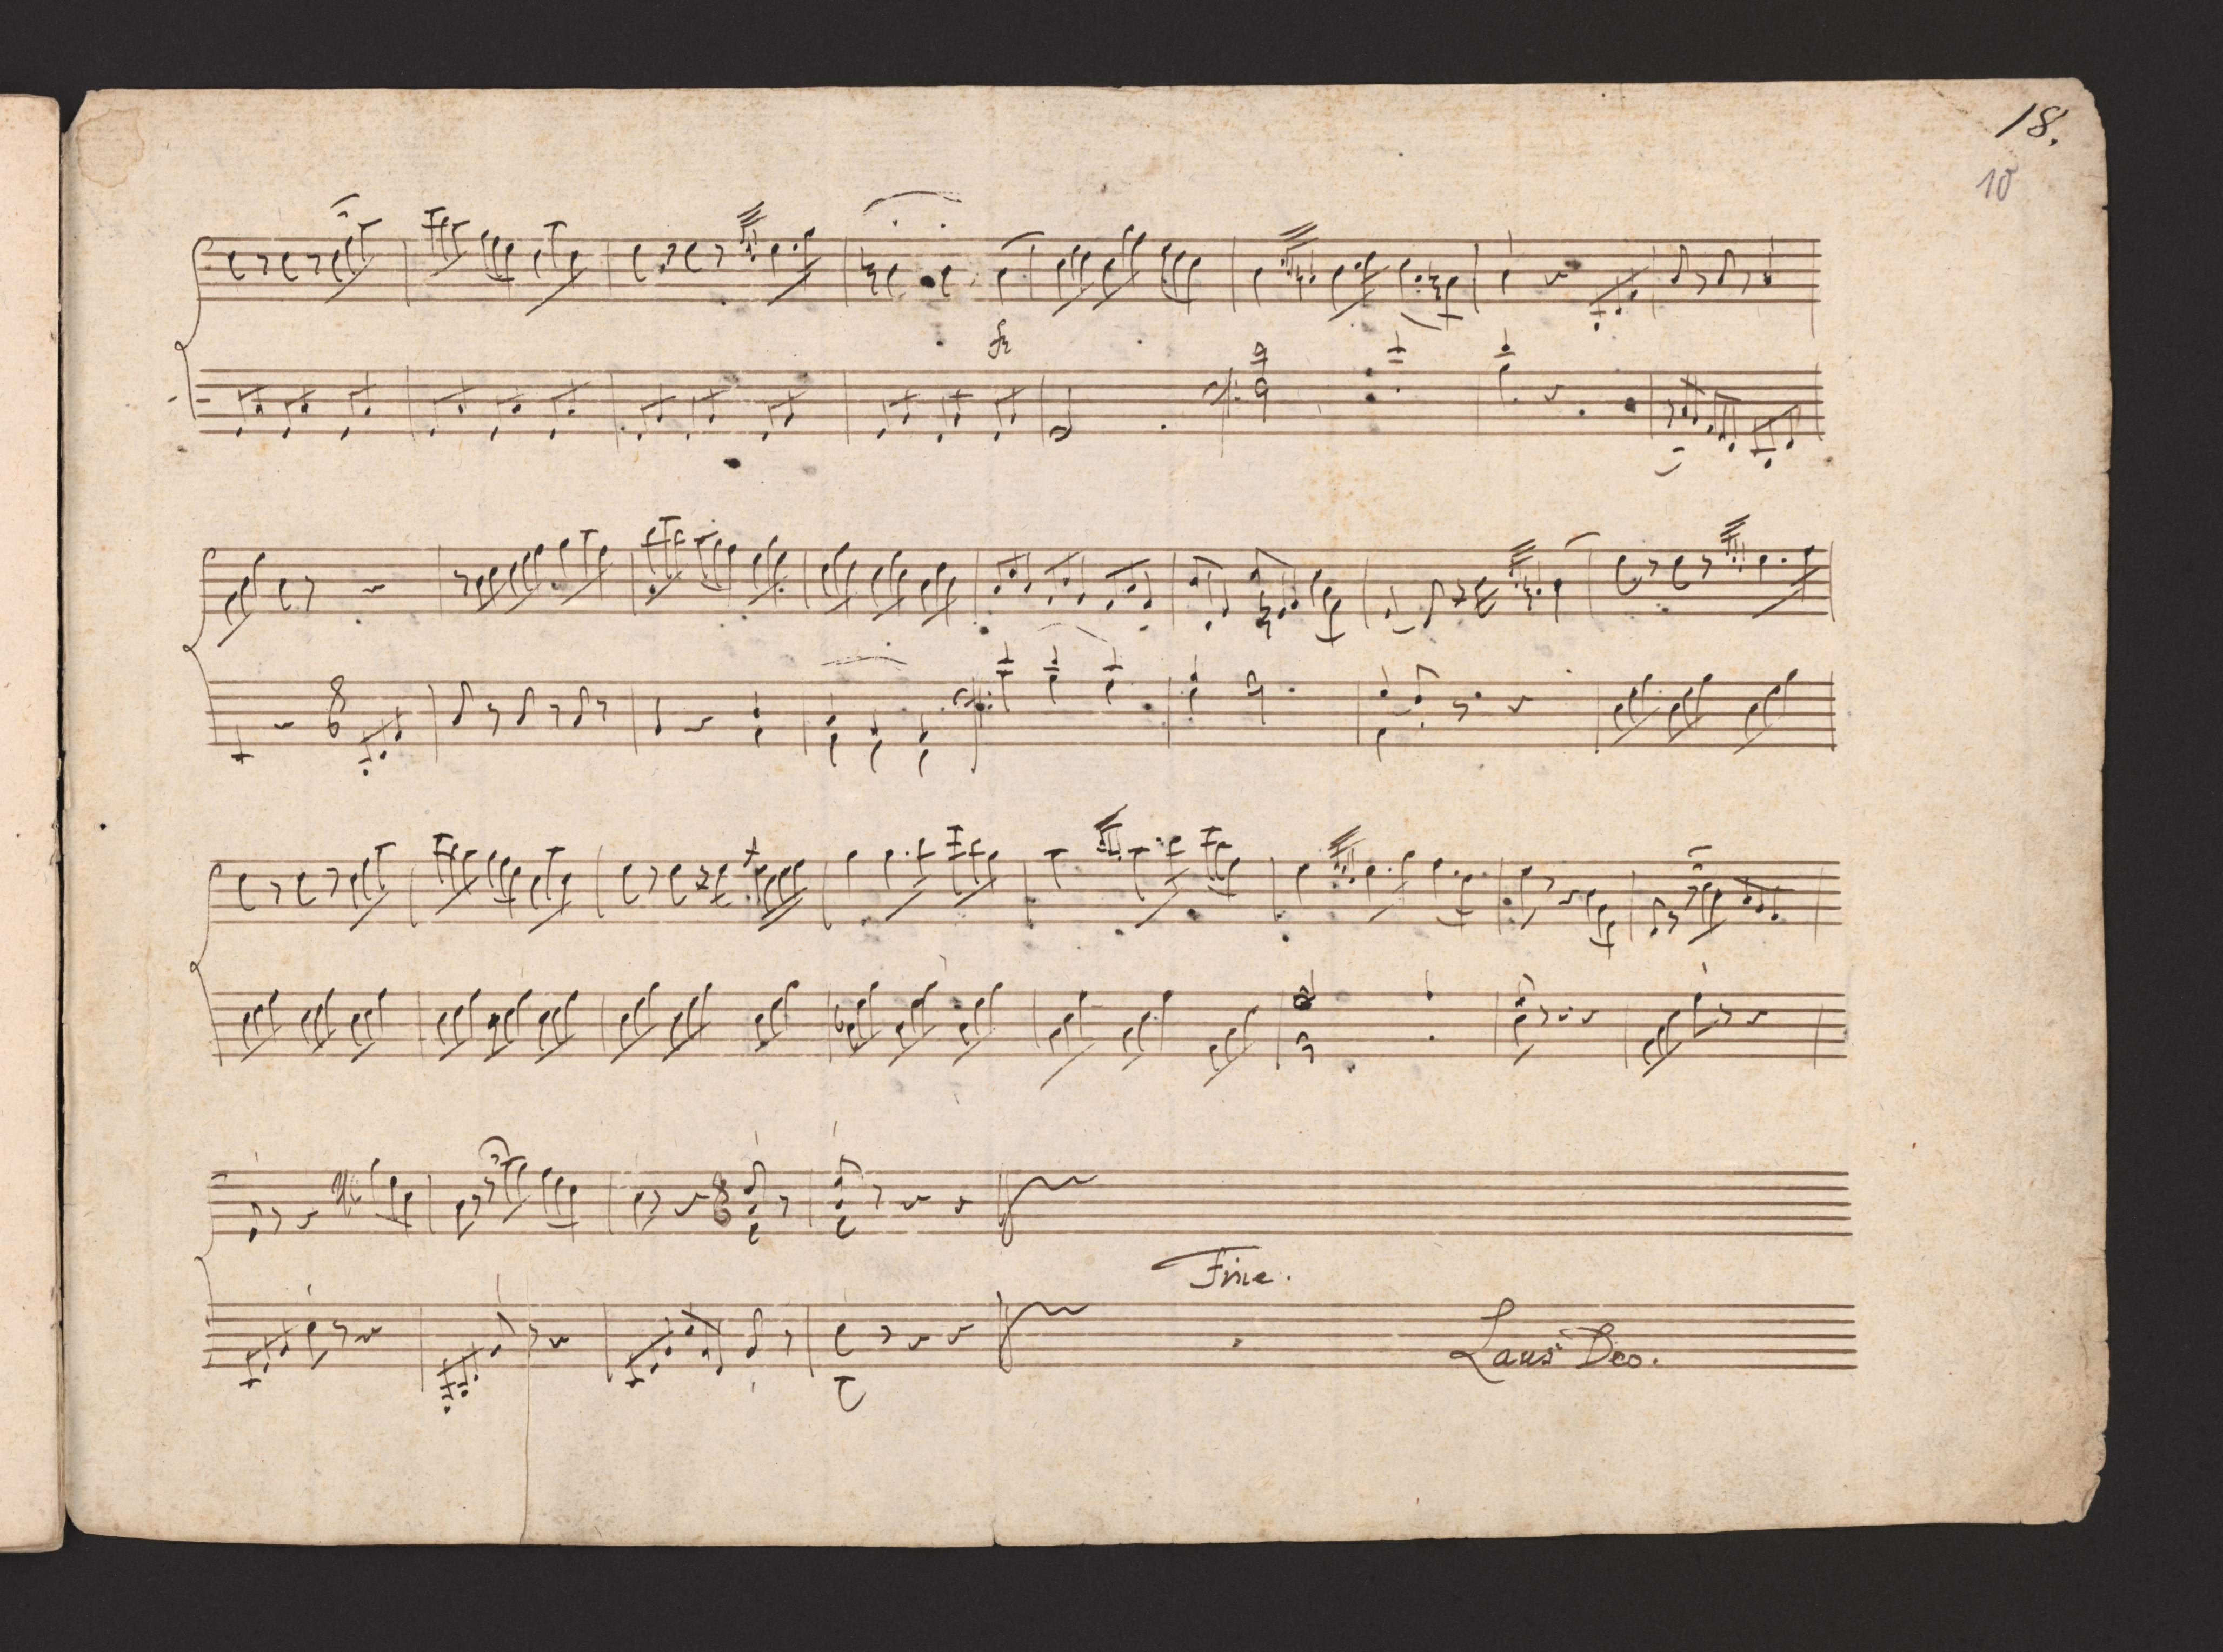 18.
10
fz
Fine.
Laus Deo.